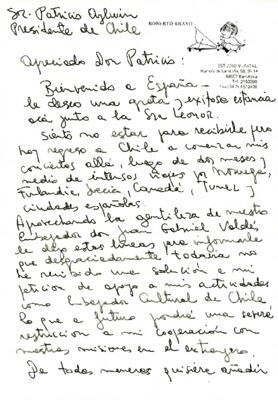 Sr. Patricio Aylwin
Presidente de Chile
ROBERTO BRAVO
Apreciado Don Patricio:
Bienvenido a España –
le deseo una grata y exitosa estancia
acá junto a la Sra Leonor.
Siento no estar para recibirle pues
hoy regreso a Chile a comenzar mis
conciertos allá, luego de dos meses y
medio de intensos viajes por Noruega,
Finlandia, Suecia, Canadá, Tunez y
ciudades españolas.
Aprovechando la gentileza de nuestro
Embajador don Juan Gabriel Valdés
le dejo estas líneas para informarle
que desgraciadamente todavía no
he recibido una solución a mi
petición de apoyo a mis actividades
como Embajador Cultural de Chile,
lo que a futuro pondrá una seria
restricción a mi cooperación con
nuestras misiones en el extranjero.
De todas maneras quisiera añadir